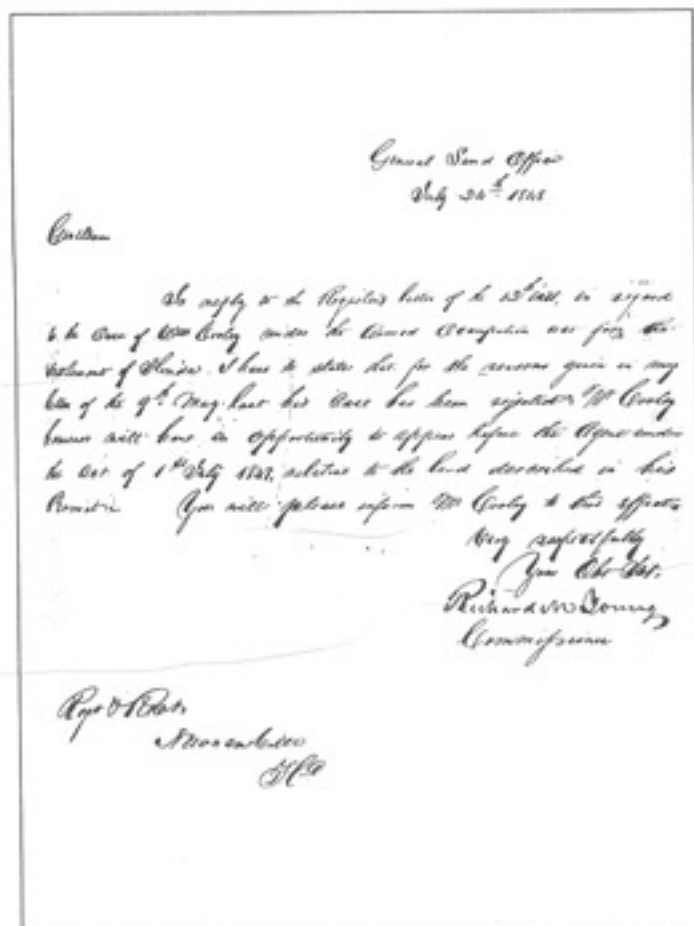 General Land Office
July 24th 1848
Gentlemen
In reply to the Register's letter of the 12th in regard
to the case of Wm Cooley under the Armed Occupation for the
settlement of Florida. I have to state that for the reasons given in my
letter of the 9th May last his case has been rejected. Mr Cooley
however will have an opportunity to appear before the Agent under
the act of 1st July 1848, relative to the land described in his
Permit. You will please inform Mr Cooley to this effect.
Very respectfully
Your Obt Svt.
Richard M Young
Commissioner
Regr & Recr
Newnansville